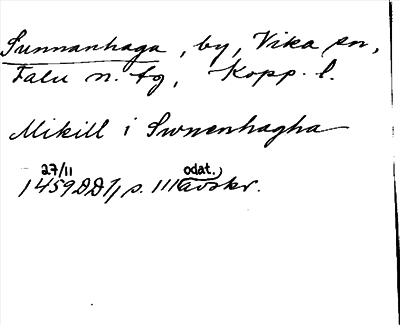 Sunnanhaga, by, Vika sn,
Falu n. tg, Kopp. l.
Mikill i Swnenhagha
27/11 odat.)
1459 DD 1, s. 111 avskr.